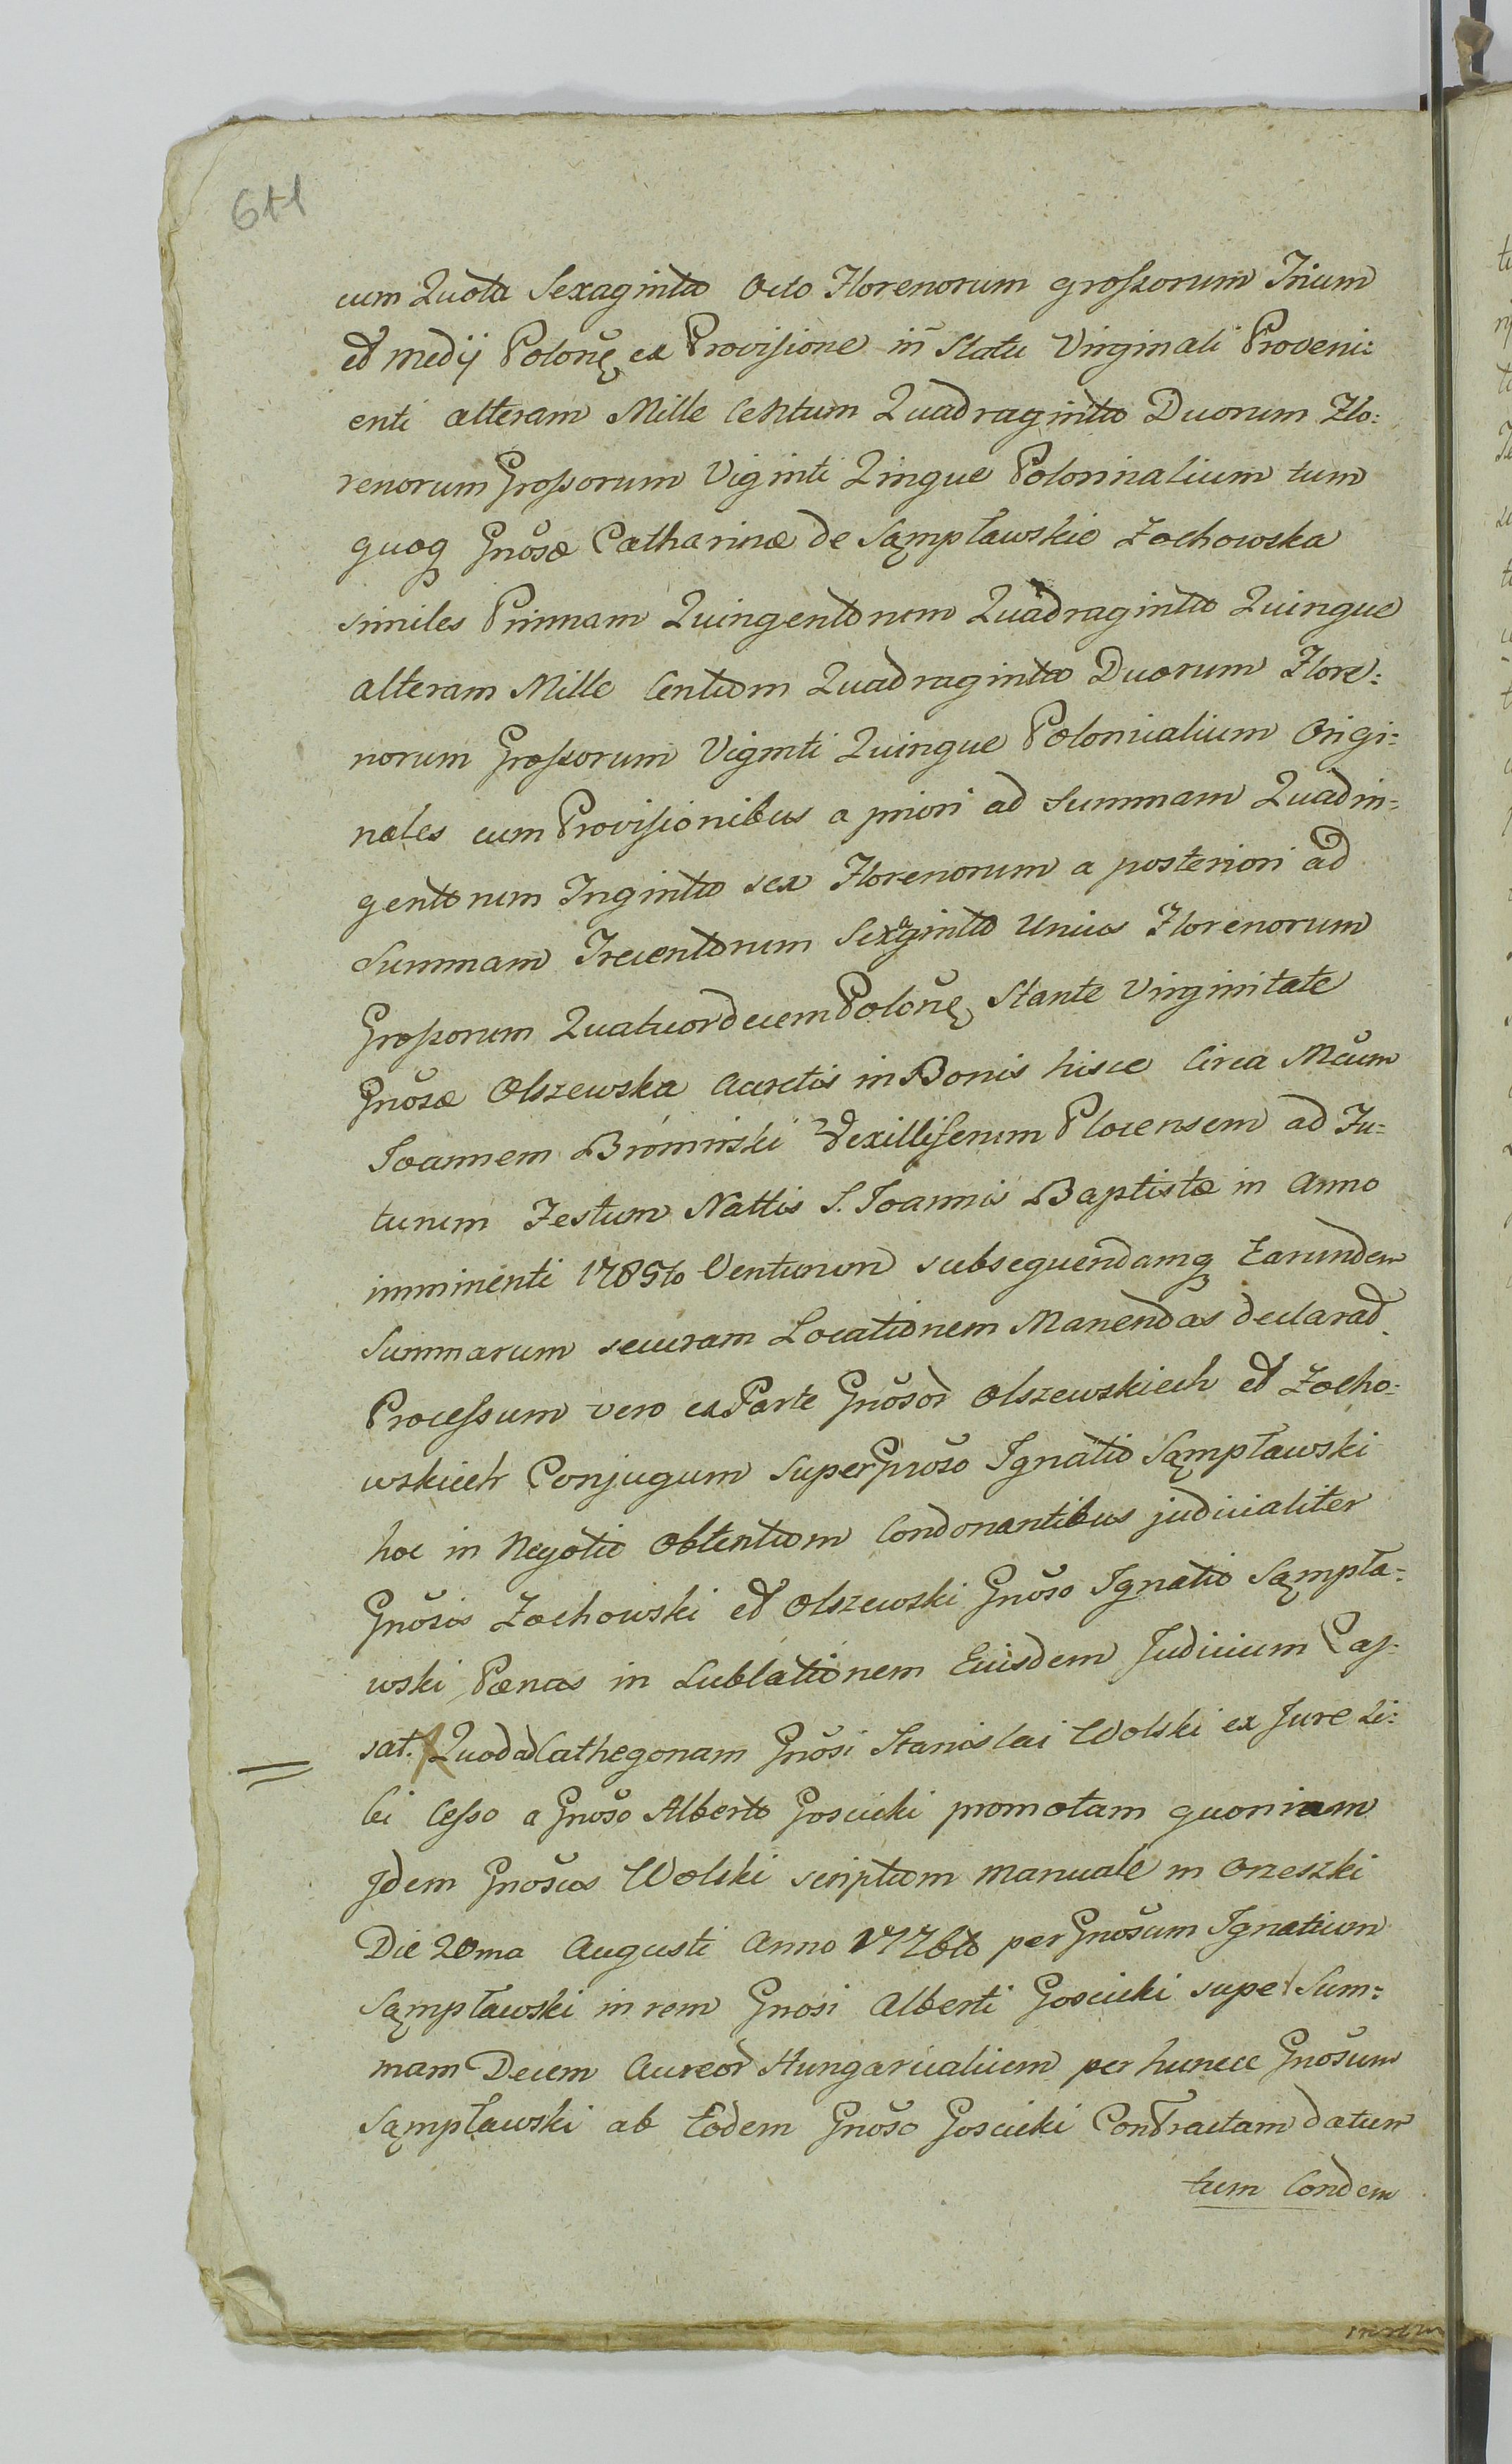 611
cum Quota Sexaginta Octo Florenorum grossorum Trium
et medij Polon̄ę ex Provisione in Statu Virginali Proveni:
enti alteram Mille Centum Quadraginta Duorum Flo:
renorum Grossorum Viginti Qinque Polonicalium tum
quoq Gnōsæ Catharinæ de Sąmpławskie Zochowska
similes Primam Quingentorum Quadraginta Quinque
alteram Mille Centum Quadraginta Duorum Flore:
norum Grossorum Viginti Quinque Polonicalium Origi:
nales cum Provisionibus a priori ad Summam Quadrin=
gentorum Triginta sex Florenorum a posteriori ad
Summam Trecentorum Sexaginta Unius Florenorum
Grossorum Quatuordecem Polon̄ę Stante Virginitate
Gnōsæ Olszewska Accretis in Bonis hisce Circa Mcūm
Joannem Bromirski Vexilliferum Plocensem ad Fu=
turum Festum Nattis S. Joannis Baptistæ in Anno
imminenti 1785to Venturum subsequendamq Earundem
Summarum securam Locationem Manendas declarat
Processum vero ex Parte Gnōsor Olszewskiech et Zocho:
wskiech Conjugum super Gnōso Ignatio Sąmpławski
hoc in Negotio Obtentum Condonantibus judicialiter
Gnōsis Zochowski et Olszewski Gnōso Ignatio Sąmpła=
wski Pænas in Sublationem Eiusdem Judicium Cas=
sat. Quod ad Cathegoriam Gnōsi Stanislai Wolski ex Jure Si:
bi Cesso a Gnōso Alberto Goscicki promotam quoniam
Jdem Gnōsus Wolski scriptum manuale in Orzeszki
Die 20ma Augusti Anno 1776to per Gnōsum Ignatium
Sąmpławski in rem Gnosi Alberti Goscicki super Sum:
mam Decem Aureor Hungaricalium per huncce Gnōsum
Sąmpławski ab Eodem Gnōso Goscicki Contractam datum
tum Condem